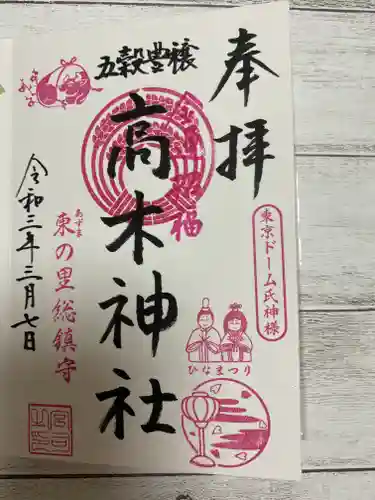 奉拝
東京ドーム氏神様
五穀豊穣
高木神社
ひなまつり
あずま
東の里総鎮守
令和三年三月七日